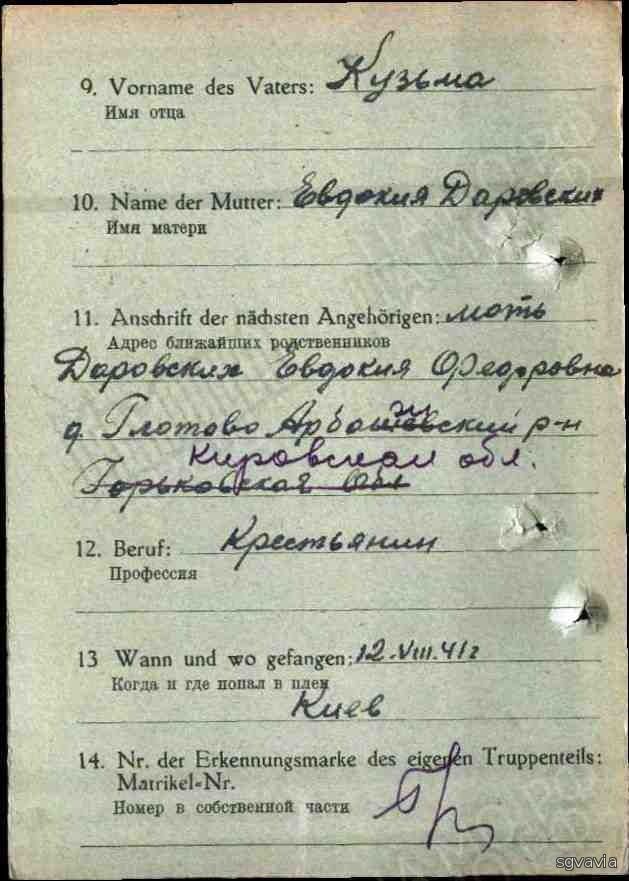 9. Vorname des Vaters: Кузьма
Имя отца
10. Name der Mutter: Евдокия Даровских
Имя матери
11. Anschrift der nächsten Angehörigen: мать
Адрес ближайших родственников
Даровских Евдокия Федоровна
д. Глотово р-н
Кировская обл.
Горьковская Обл
12. Beruf: Крестьянин
Профессия
13 Wann und wo gefangen: 12.VIII.41г
Когда и где попал в плен
Киев
14. Nr. der Erkennungsmarke des eigenen Truppenteils:
Matrikel=Nr.
Номер в собственной части
sgvavia